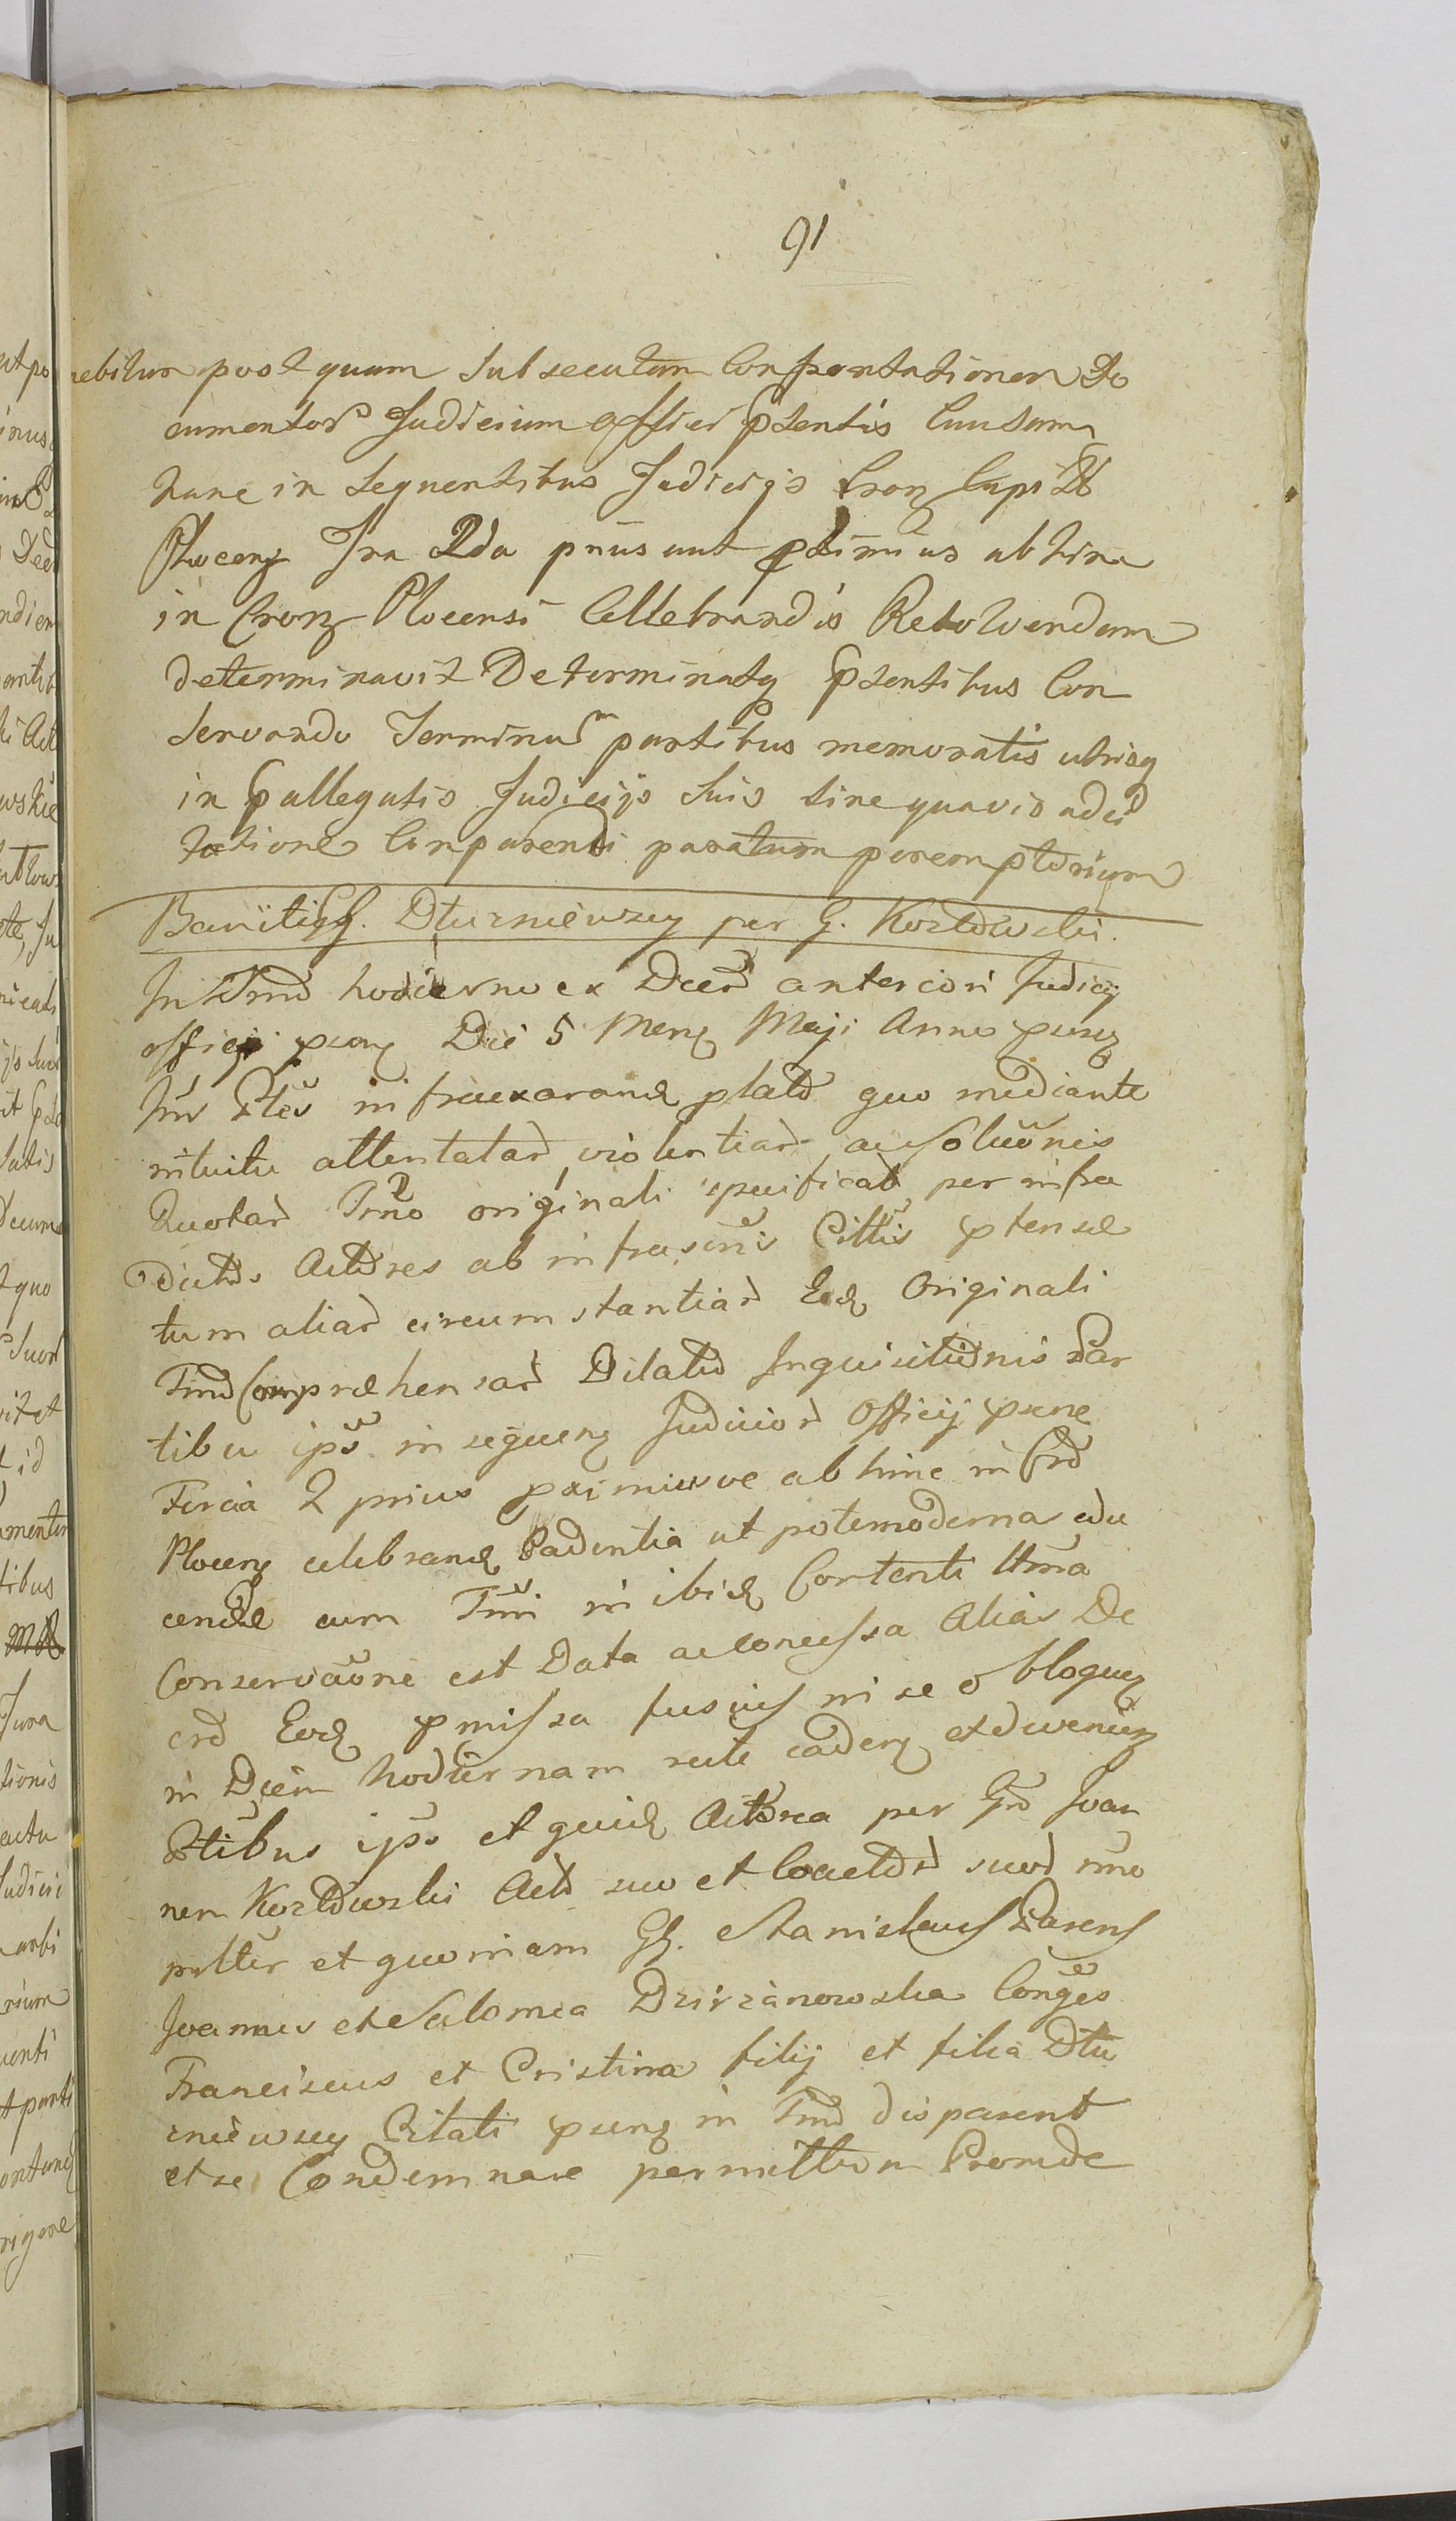 91
nebitur postquam subsecutam Comportationem Do
cumentor Judicium officii pntentis Causam
hanc in sequentibus Judicijs Cron Capi
Plocen Fra 2da prius aut pximius abhinc
in Cron Plocensi Cellebrandis Resolvendam
determinavit Determinatq pntentibus Con
servando Terminum partibus memoratis utrisq
in pallegatis Judicijs suis sine quavis adci
tatione Comparendi paratum peremptorium
Banitio G. Dłuzniewscy per G. Kozłowski.
In Tmo hodierno ex Decr anteriori Judicij
officij psen Die 5 Men Maji Anno psen
Int Ptes infraexarand plato quo mediante
intuitu attentatar violentiar ac solutionis
Quotar Tmo originali specificat per infra
Dictos Actores ab infrascris Cittis ptensae
tum aliar circumstantiar Eod Originali
Tmo Comprehensar Dilatio Inquisitionis Par
tibu ips in sequen Judicior Officij psene
Feria 2 prius pximiusve abhinc in Cro
Plocen celebrand Cadentia utpote moderna edu
cendae cum Tmi in ibid Contenti Uma
Conservaone est Data ac concessa Alias De
cro Eod pmissa fusius in se obloquen
in Diem hodiernam recte caden et devenien
Ptibus ips et quid Actorea per Gm Joan
nem Kozłowski Act suo et Coactor suor nno
pntter et quoniam G. Stanislaus Parens
Joannes et Salomea Dzirzanowska Conges
Franciscus et Cristina filij et filia Dłu
zniewscy Citati psens in Tmo disparent
et se Condemnare permittun Proinde